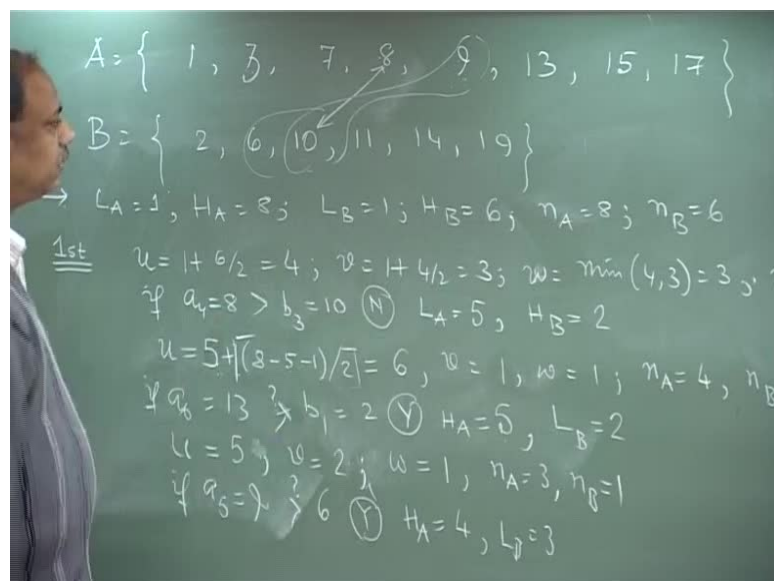 A = { 1, 3, 7, 8, 9, 13, 15, 17 }
B = { 2, 6, 10, 11, 14, 19 }
→ L_A = 1, H_A = 8; L_B = 1; H_B = 6; n_A = 8; n_B = 6
1st u = 1 + 6/2 = 4; v = 1 + 4/2 = 3; w = min(4,3) = 3;
if a_4 = 8 > b_3 = 10 (N) L_A = 5, H_B = 2
u = 5 + ⌈(8-5-1)/2⌉ = 6, v = 1, w = 1; n_A = 4, n_B
if a_6 = 13 ?> b_1 = 2 (Y) H_A = 5, L_B = 2
u = 5; v = 2; w = 1, n_A = 3, n_B = 1
if a_5 = 9 ?> 6 (Y) H_A = 4, L_B = 3